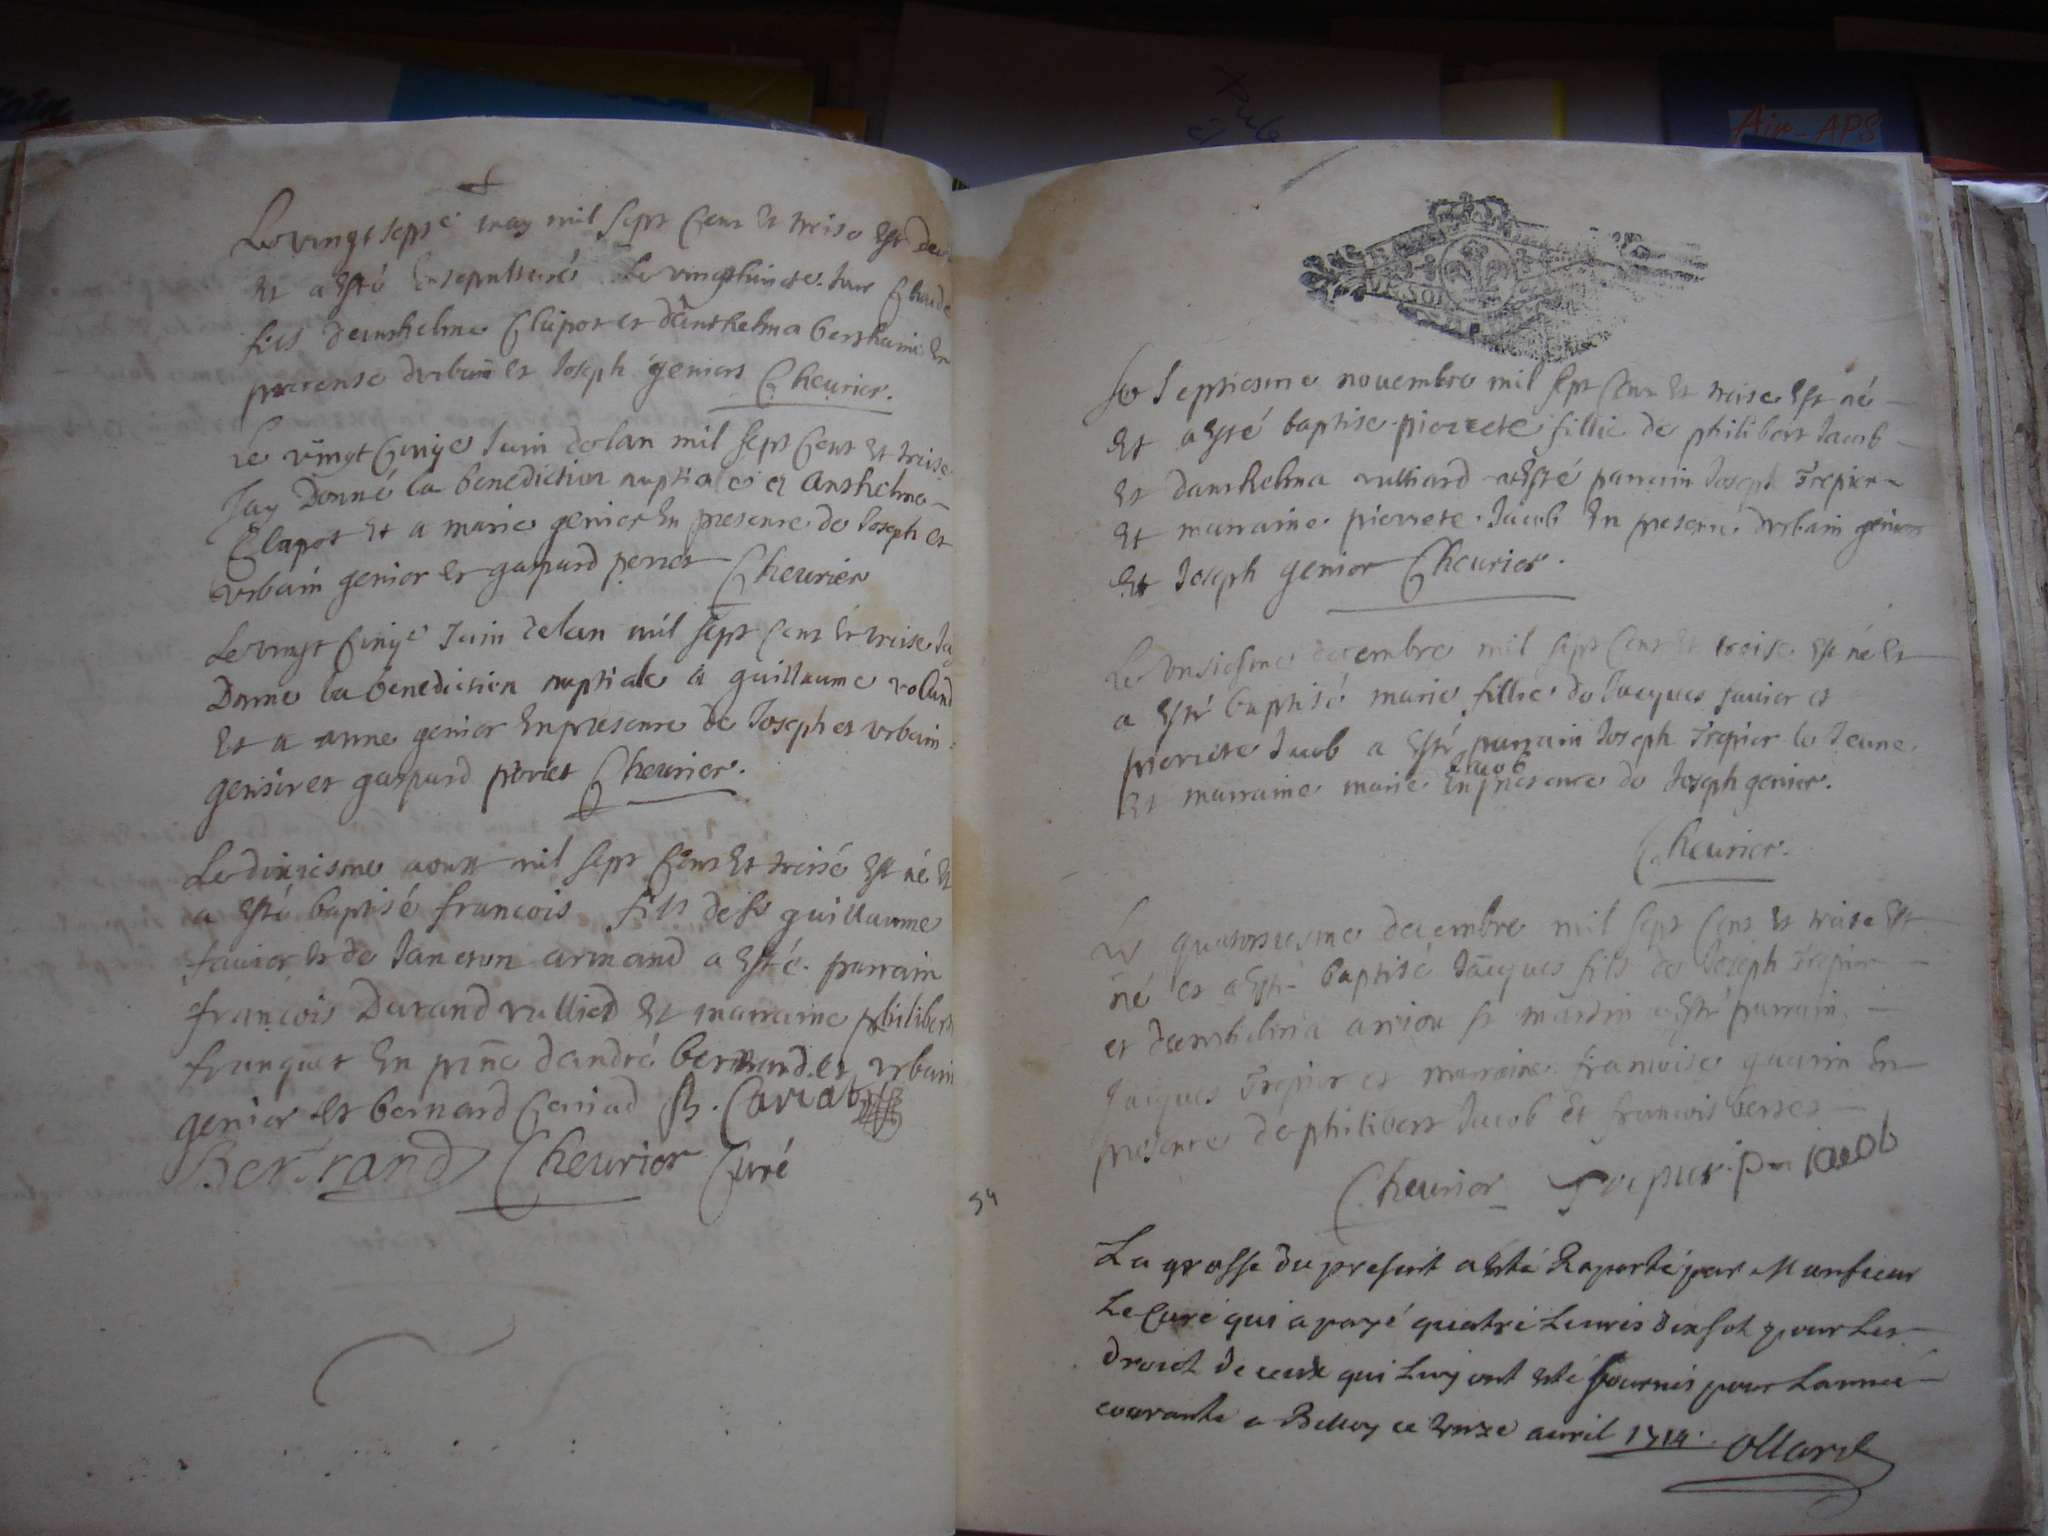 Le vingt sept may mil sept Cent et treise Est
et a esté Ensepulturé le vingthuict
fils danthelme Clapot et danthelma
presence durbain et Joseph geniers Cheurier.
Le vingt Cinq Juin delan mil sept Cent et treise
Jay Donné la benediction nuptiale a Anthelme
Clapot Et a marie genier En presence de Joseph et
urbain genier et gaspard perret Cheurier
Le vingt Cinq Juin delan mil sept Cent et treise Jay
Donne la benediction nuptiale a guillaume
Et a anne genier En presence de Joseph et urbain
genier et gaspard perret Cheurier.
Le dixiesme aoust mil sept Cent Et treise Est né Et
a Esté baptisé francois fils de Sr guillaume
fauier Et de armand a Esté parrain
francois Durand Et marraine philiberte
En pnce dandré bertrand et urbain
genier Et bernard
Bertrand Cheurier Curé
Le septiesme nouembre mil sept Cent Et treise Est né
Et a Esté baptise pierrete fillie de philibert Jacob
Et danthelma rulliard a Esté parrain Joseph Trepier
Et marraine pierrete Jacob En presence durbain genier
Et Joseph genier Cheurier.
Le Unsiesme decembre mil sept Cent Et treise Est né Et
a Esté baptisé marie fillie de Jacques fauier et
pierrete Jacob a Esté parrain Joseph Trepier le Jeune
Et marraine marie Jacob En presence de Joseph genier.
Cheurier.
Le quatorsiesme decembre mil sept Cent Et treise Est
né et a Esté baptisé Jacques fils de Joseph Trepier
et danthelma a Esté parrain
Jacques Trepier et marraine francoise guerin En
presence de philibert Jacob Et francois
Cheurier Trepier p Jacob
54
La grosse du present a esté Raporté par Monsieur
Le Curé qui a payé quatre Liures dix sol pour Les
droict de ceux qui Luy ont esté fournis pour Lannée
courante a Belley ce onze auril 1714. Ollard
Air-APS